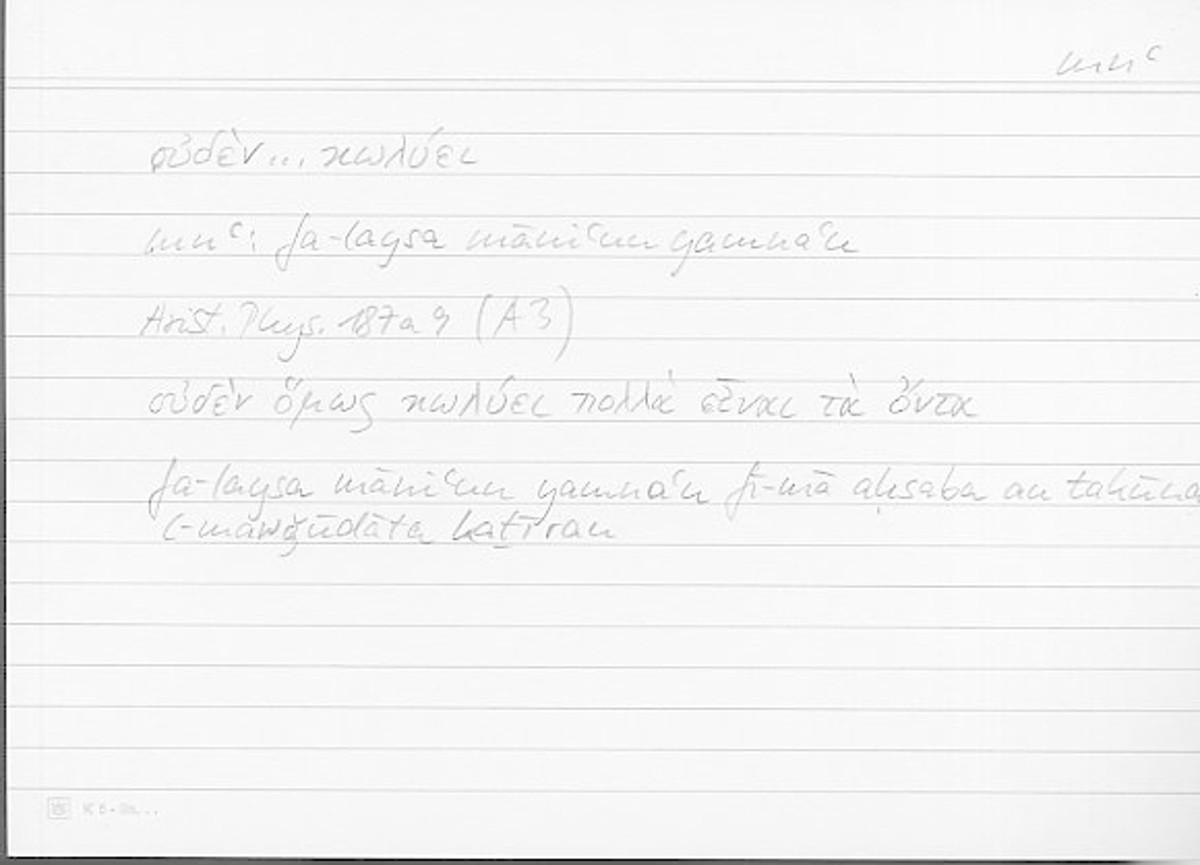 mnʿ
οὐδὲν... κωλύει
mnʿ: fa-laysa māniʿun yamnaʿu
Arist. Phys. 187a9 (A3)
οὐδὲν ὅμως κωλύει πολλὰ εἶναι τὰ ὄντα
fa-laysa māniʿun yamnaʿu fī-mā aḥsaba an takūna
l-mawǧūdāta kaṯīran